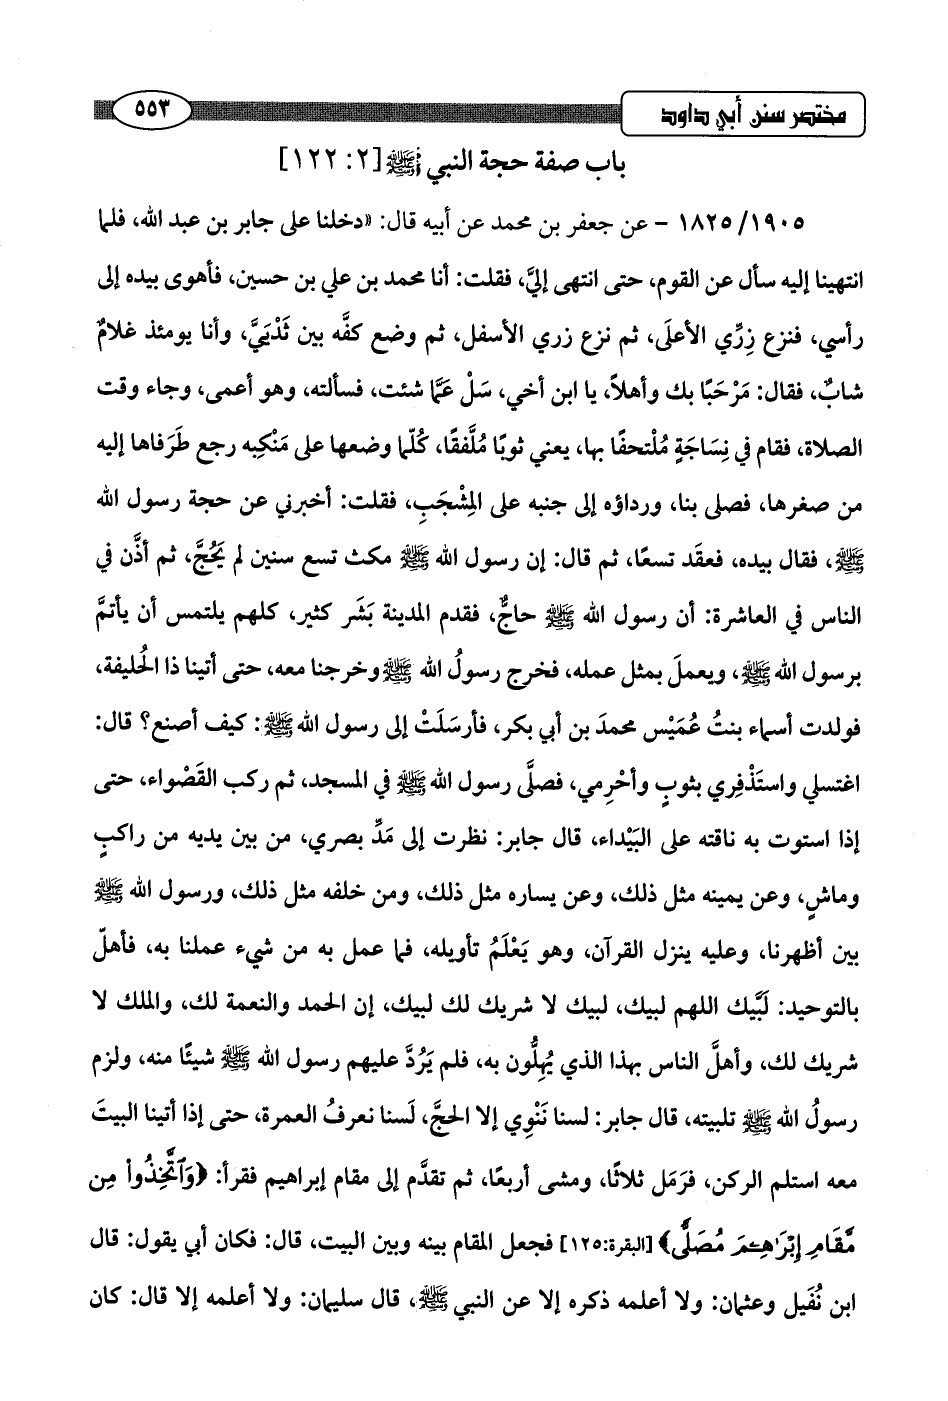 مختصر سنن أبي داود
٥٥٣
باب صفة حجة النبي ﷺ [٢: ١٢٢]
١٨٢٥/١٩٠٥ – عن جعفر بن محمد عن أبيه قال: «دخلنا على جابر بن عبد الله، فلما
انتهينا إليه سأل عن القوم، حتى انتهى إليَّ، فقلت: أنا محمد بن علي بن حسين، فأهوى بيده إلى
رأسي، فنزع زِرِّي الأعلَى، ثم نزع زري الأسفل، ثم وضع كفَّه بين ثَدْيَيَّ، وأنا يومئذ غلامٌ
شابٌ، فقال: مَرْحَبًا بك وأهلاً، يا ابن أخي، سَلْ عَمَّا شئت، فسألته، وهو أعمى، وجاء وقت
الصلاة، فقام في نِسَاجَةٍ مُلْتحفًا بها، يعني ثوبًا مُلَّفقًا، كُلّما وضعها على مَنْكِبه رجع طَرَفاها إليه
من صغرها، فصلى بنا، ورداؤه إلى جنبه على المِشْجَبِ، فقلت: أخبرني عن حجة رسول الله
ﷺ، فقال بيده، فعقَد تسعًا، ثم قال: إن رسول الله ﷺ مكث تسع سنين لم يَحُجَّ، ثم أذَّن في
الناس في العاشرة: أن رسول الله ﷺ حاجٌّ، فقدم المدينة بَشَر كثير، كلهم يلتمس أن يأتمَّ
برسول الله ﷺ، ويعملَ بمثل عمله، فخرج رسولُ الله ﷺ وخرجنا معه، حتى أتينا ذا الحُليفة،
فولدت أسماء بنتُ عُمَيْس محمدَ بن أبي بكر، فأرسَلَتْ إلى رسول الله ﷺ: كيف أصنع؟ قال:
اغتسلي واستَذْفِري بثوبٍ وأحْرِمي، فصلَّى رسول الله ﷺ في المسجد، ثم ركب القَصْواء، حتى
إذا استوت به ناقته على البَيْداء، قال جابر: نظرت إلى مَدِّ بصري، من بين يديه من راكبٍ
وماشٍ، وعن يمينه مثل ذلك، وعن يساره مثل ذلك، ومن خلفه مثل ذلك، ورسول الله ﷺ
بين أظهرنا، وعليه ينزل القرآن، وهو يَعْلَمُ تأويله، فما عمل به من شيء عملنا به، فأهلّ
بالتوحيد: لَبَّيك اللهم لبيك، لبيك لا شريك لك لبيك، إن الحمد والنعمة لك، والملك لا
شريك لك، وأهلَّ الناس بهذا الذي يُهِلُّون به، فلم يَرُدَّ عليهم رسول الله ﷺ شيئًا منه، ولزم
رسولُ الله ﷺ تلبيته، قال جابر: لسنا نَنْوِي إلا الحجَّ، لَسنا نعرفُ العمرة، حتى إذا أتينا البيتَ
معه استلم الركن، فرَمَل ثلاثًا، ومشى أربعًا، ثم تقدَّم إلى مقام إبراهيم فقرأ: ﴿وَٱتَّخِذُوا۟ مِن
مَّقَامِ إِبْرَٰهِـۧمَ مُصَلًّى﴾ [البقرة:١٢٥] فجعل المقام بينه وبين البيت، قال: فكان أبي يقول: قال
ابن نُفَيل وعثمان: ولا أعلمه ذكره إلا عن النبي ﷺ، قال سليمان: ولا أعلمه إلا قال: كان